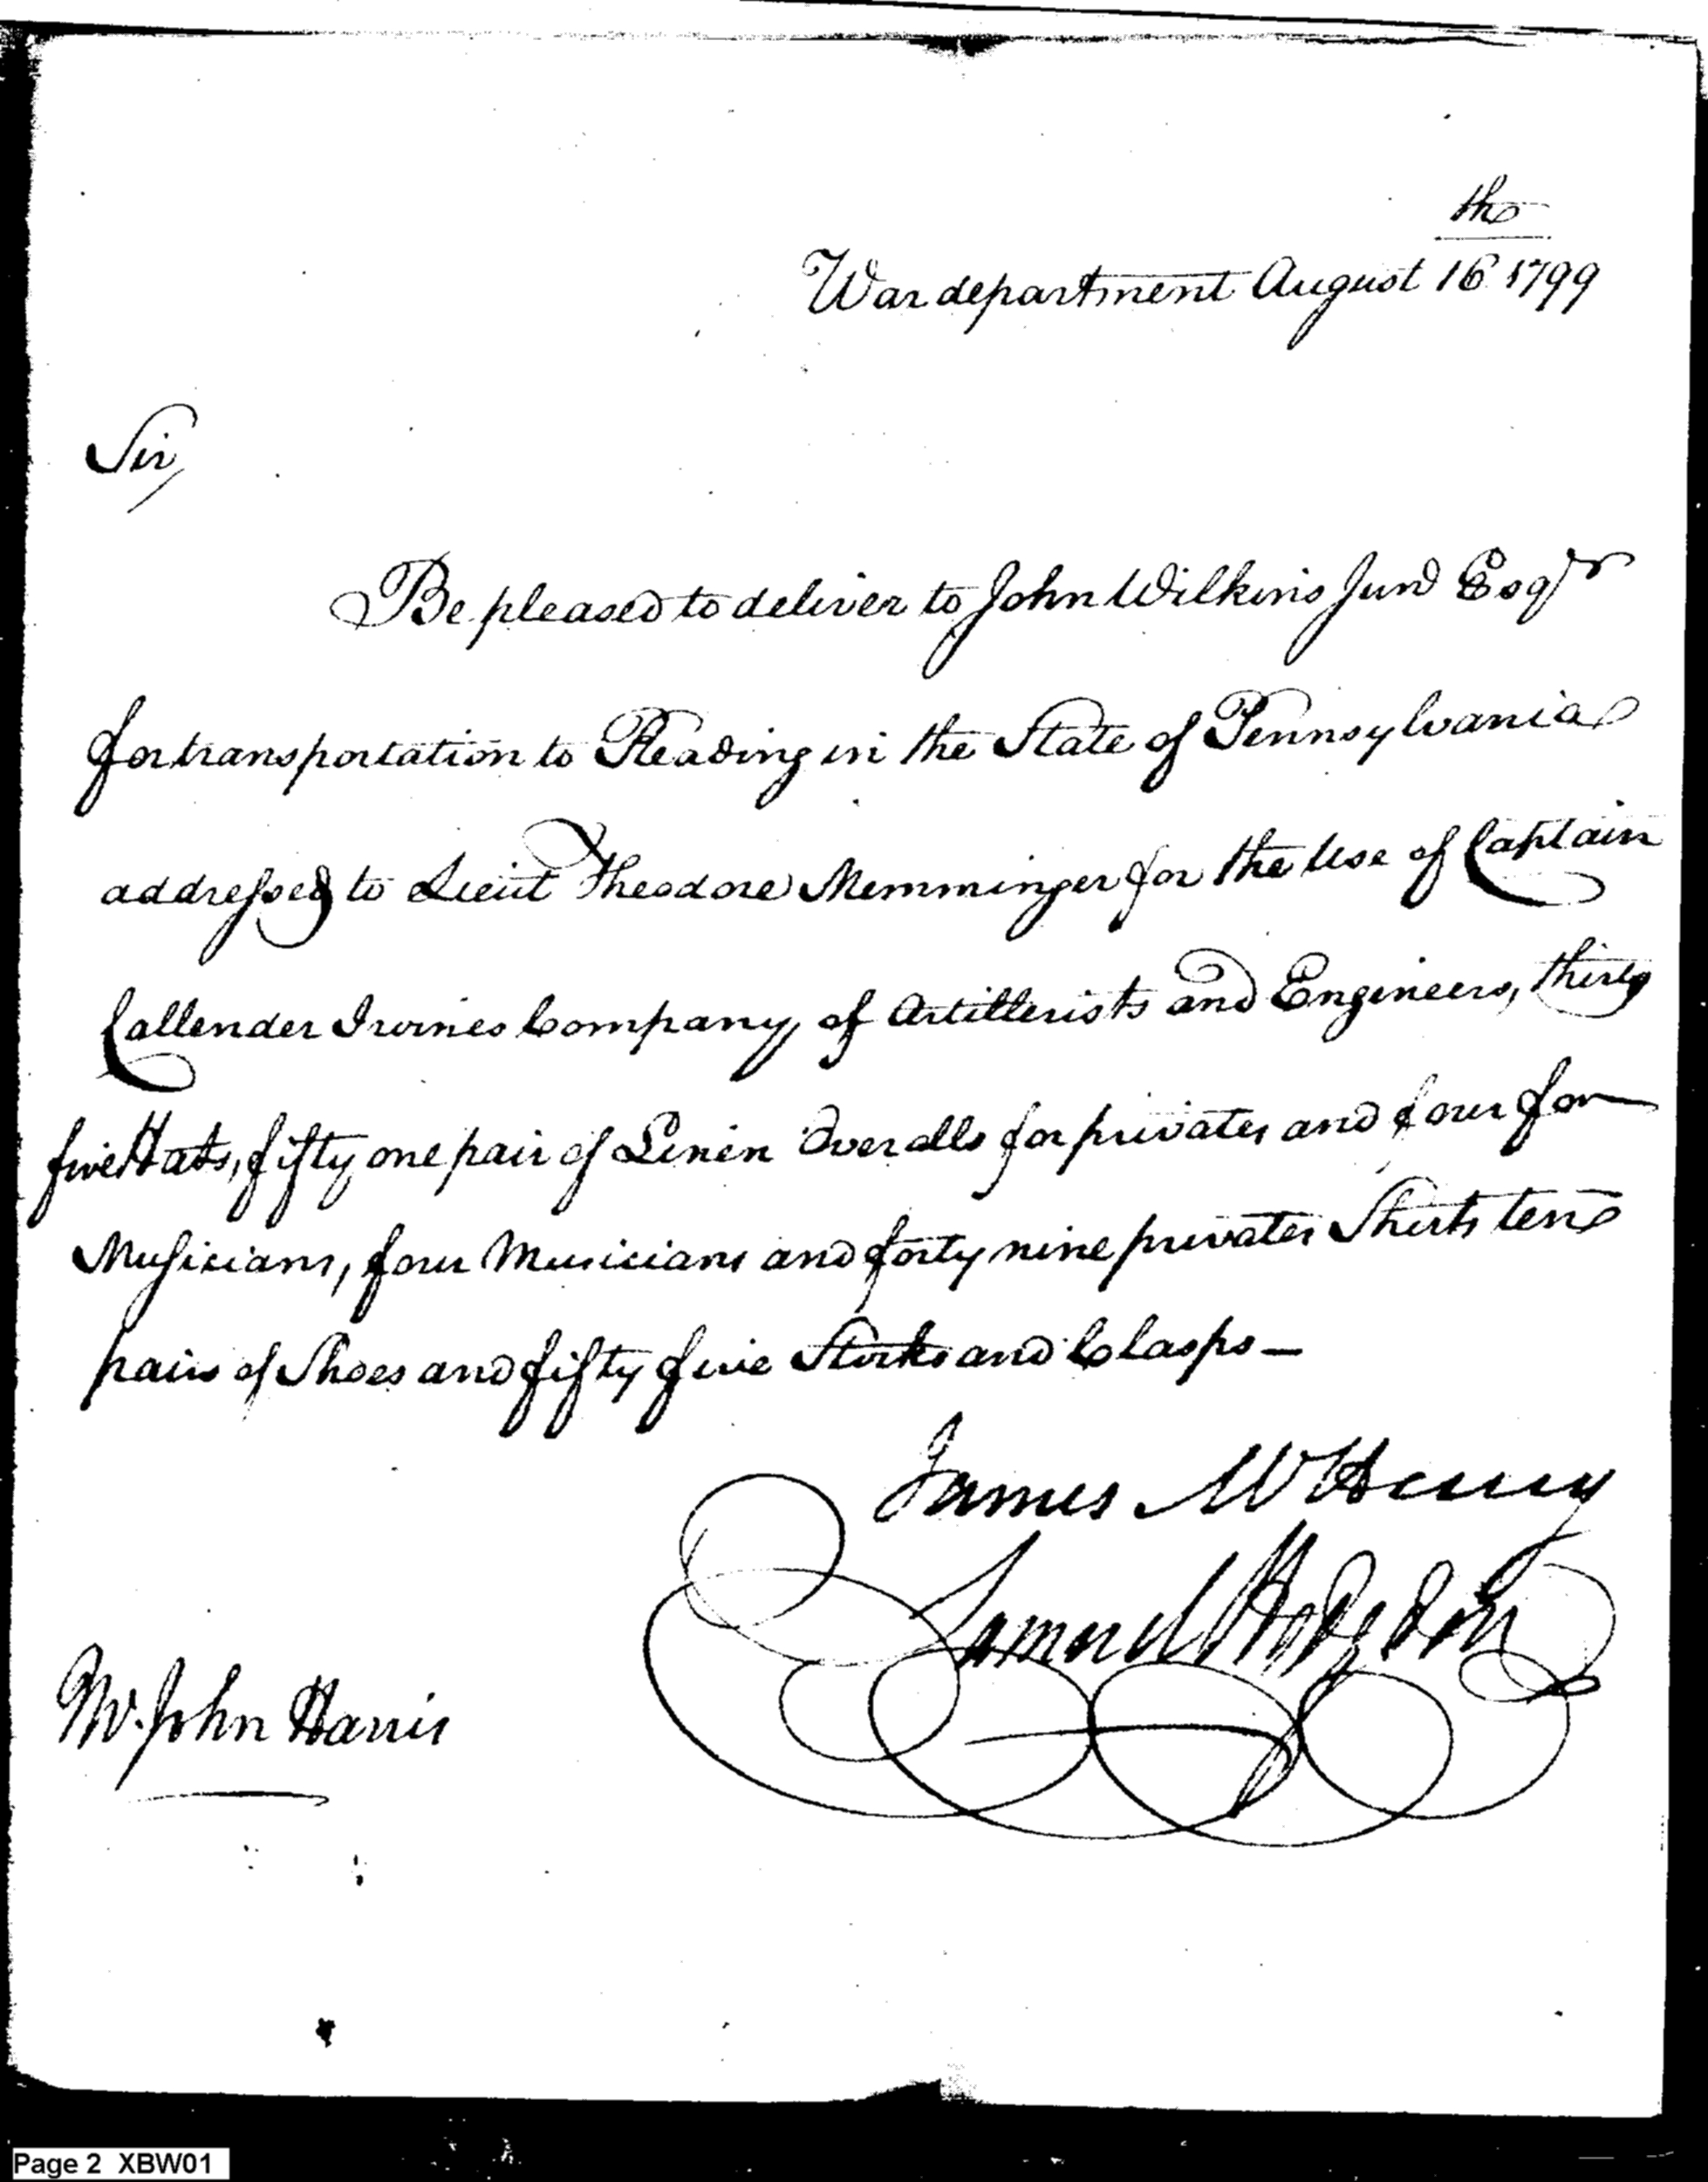 War department August 16th 1799
Sir,
Be pleased to deliver to John Wilkins Junr Esqr
for transportation to Reading in the State of Pennsylvania
addressed to Lieut Theodore Memminger for the Use of Captain
Callender Irvines Company, of Artillerists and Engineers, thirty
five Hats, fifty one pair of Linen Overalls for privates and four for
Musicians, four Musicians and forty nine privates Shirts ten
pairs of Shoes and fifty five Stocks and Clasps—
James McHenry
Samuel Hodgdon
Mr. John Harris
Page 2 XBW01